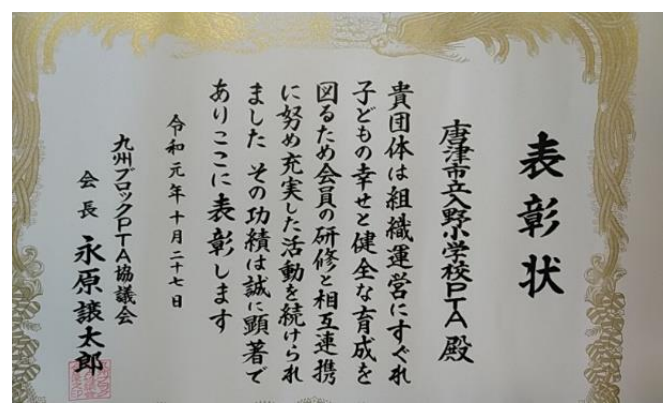 表彰状
唐津市立入野小学校PTA殿
貴団体は組織運営にすぐれ
子どもの幸せと健全な育成を
図るため会員の研修と相互連携
に努め充実した活動を続けられ
ました その功績は誠に顕著で
ありここに表彰します
令和元年十月二十七日
九州ブロックPTA協議会
会長 永原譲太郎